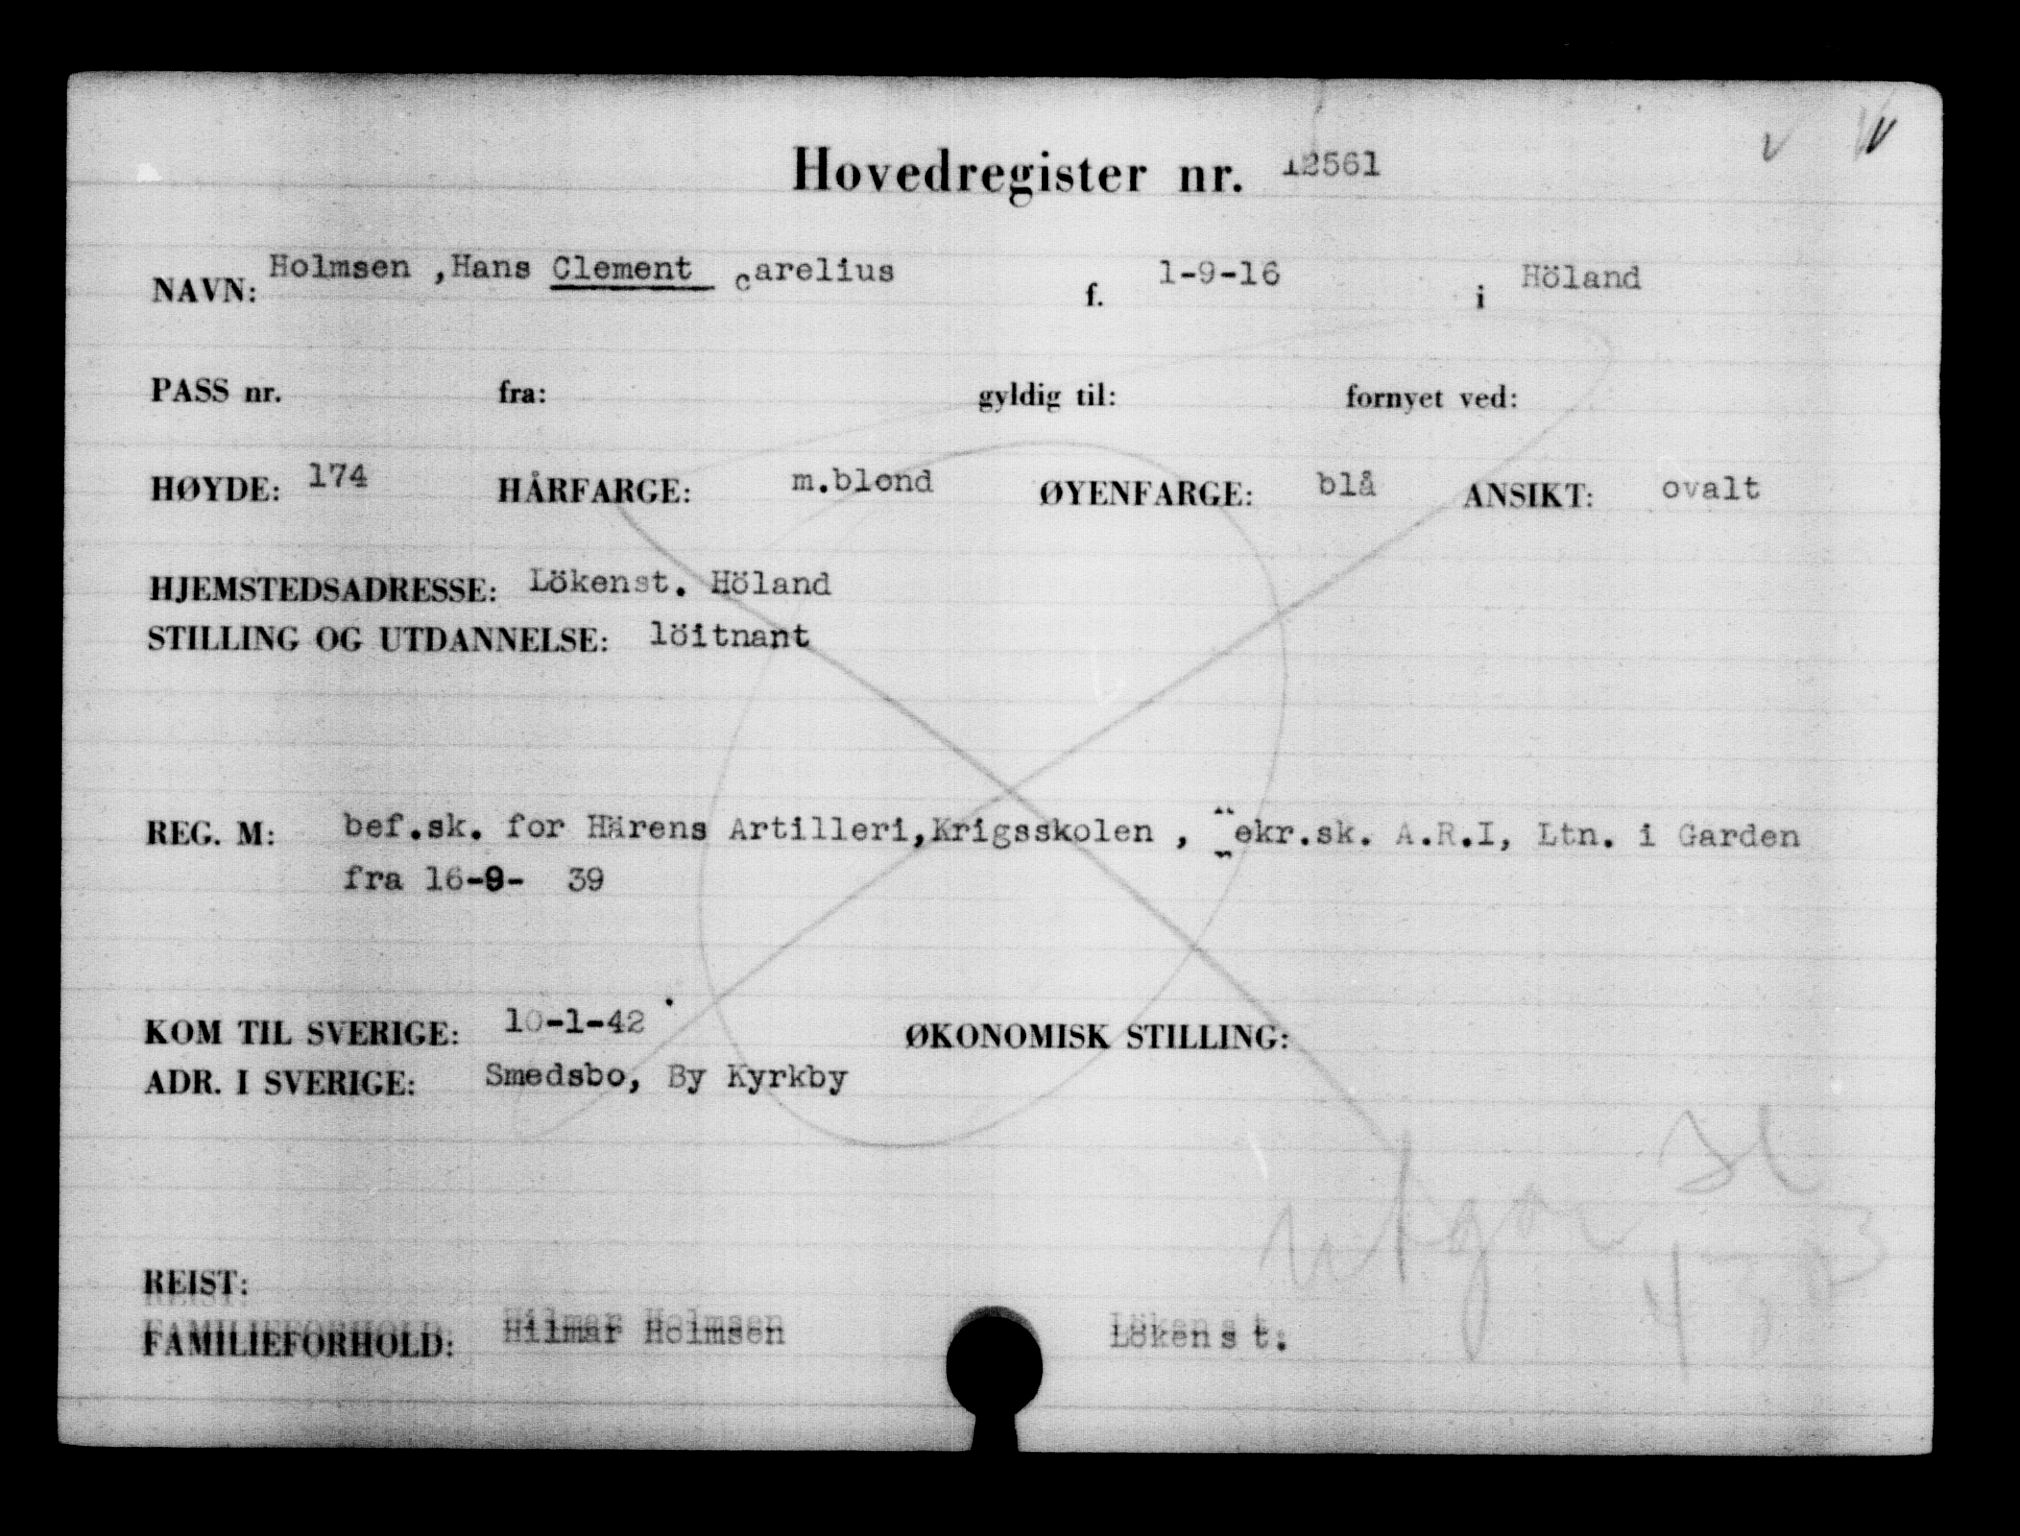 Hovedregister nr. 12561
NAVN: Holmsen ,Hans Clement carelius f. 1-9-16 i Höland
PASS nr. fra: gyldig til: fornyet ved:
HØYDE: 174 HÅRFARGE: m.blond ØYENFARGE: blå ANSIKT: ovalt
HJEMSTEDSADRESSE: Lökenst. Höland
STILLING OG UTDANNELSE: löitnant
REG. M: bef.sk. for Härens Artilleri,Krigsskolen , ekr.sk. A.R.I, Ltn. i Garden
fra 16-9- 39
KOM TIL SVERIGE: 10-1-42 ØKONOMISK STILLING:
ADR. I SVERIGE: Smedsbo, By Kyrkby
REIST:
FAMILIEFORHOLD: Hilmar Holmsen Lökenst.